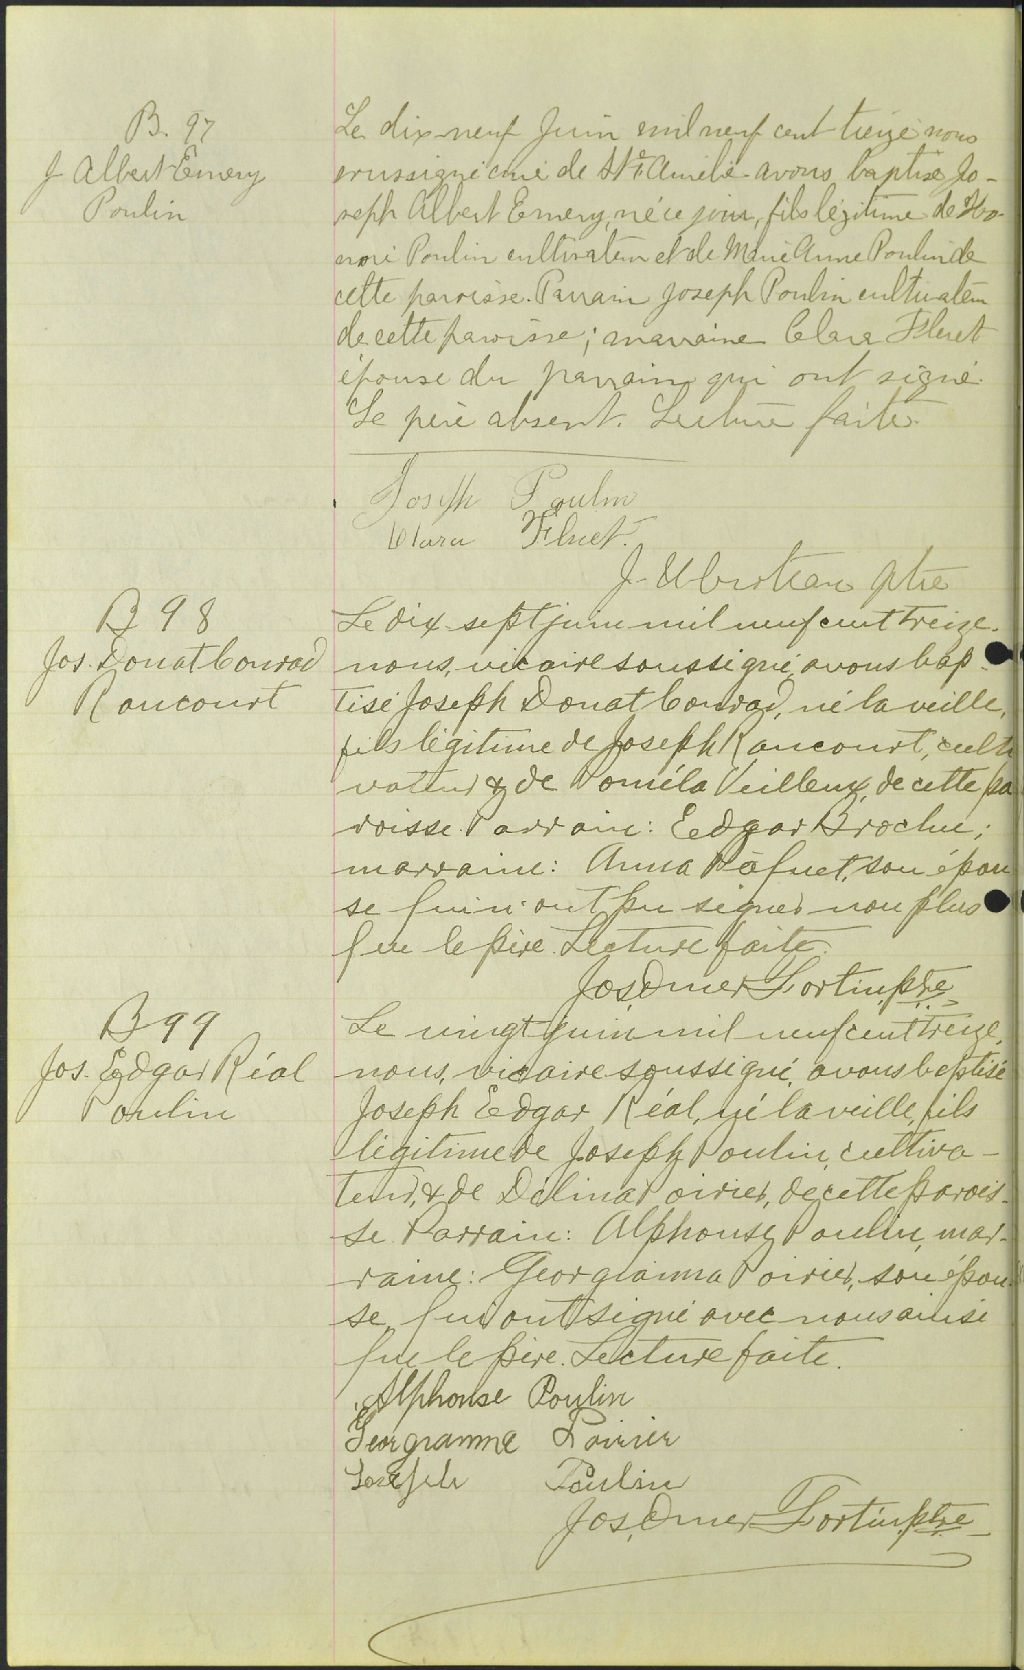 B. 97
J Albert Emery
Poulin
Le dix-neuf Juin mil neuf cent treize nous
soussigné curé de Ste Aurélie avons baptisé Jo-
seph Albert Emery, né ce jour, fils légitime de Ho-
noré Poulin cultivateur et de Marie Anne Poulin de
cette paroisse. Parrain Joseph Poulin cultivateur
de cette paroisse; marraine Clara Fluet
épouse du parrain qui ont signé.
Le père absent. Lecture faite.
Joseph Poulin
Clara Fluet.
J. ptre
B 98
Jos. Donat Conrad
Rancourt
Le dix-sept juin mil neuf cent treize.
nous, vicaire soussigné, avons bap-
tisé Joseph Donat Conrad, né la veille,
fils légitime de Joseph Rancourt, culti
vateur & de Roméla Veilleux, de cette pa
roisse. Parrain: Edgar Brochu;
marraine: Anna son épou
se qui n'ont pu signer non plus
que le père. Lecture faite.
Jos. Omer Fortin, ptre
B 99
Jos. Edgar Réal
Poulin
Le vingt juin mil neuf cent treize,
nous, vicaire soussigné, avons baptisé
Joseph Edgar Réal, né la veille, fils
légitime de Joseph Poulin, cultiva-
teur, & de Délina Poirier, de cette parois-
se. Parrain: Alphonse Poulin, mar-
raine: Georgianna Poirier, son épou-
se, qui ont signé avec nous ainsi
que le père. Lecture faite.
Alphonse Poulin
Georgianna Poirier
Joseph Poulin
Jos. Omer Fortin, ptre